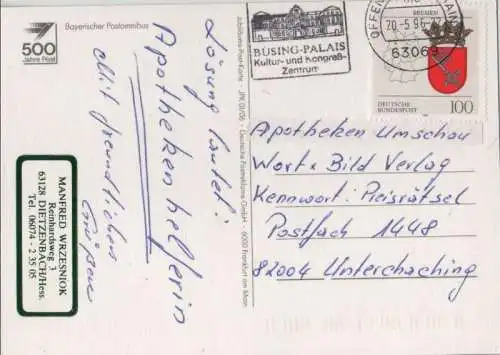 500
Jahre Post
Bayerischer Postomnibus
Lösung lautet:
Apothekenhelferin
Mit freundlichen
Grüßen
MANFRED WRZESNIOK
Reinhardsweg 3
63128 DIETZENBACH/Hess.
Tel. 06074 - 2 35 05
Jubiläums-Post-Karte · Deutsche Postreklame GmbH · 6000 Frankfurt am Main
BÜSING-PALAIS
Kultur- und Kongreß-
Zentrum
OFFENBACH
20.-5.96
63069
BREMEN
DEUTSCHE
BUNDESPOST
100
Apotheken Umschau
Wort & Bild Verlag
Kennwort: Preisrätsel
Postfach 1448
82004 Unterhaching